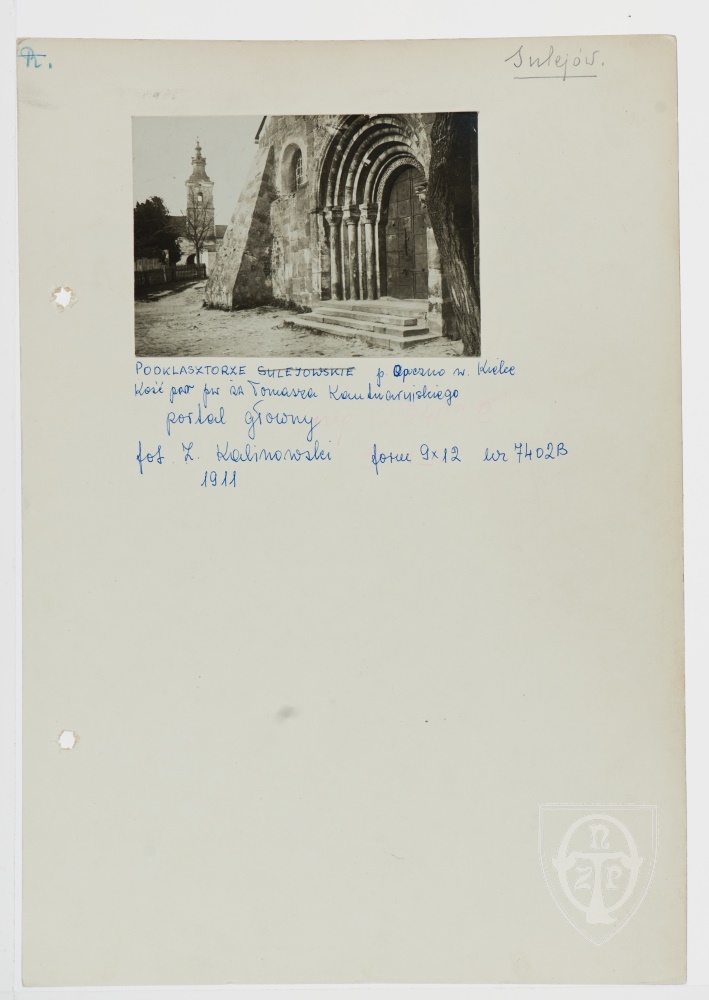 R.
Sulejów.
PODKLASZTORZE SULEJOWSKIE p. Opoczno w. Kielce
Kość par pw św Tomasza Kantuaryjskiego
portal główny
fot. Z. Kalinowski form 9x12 nr 7402B
1911
NZP